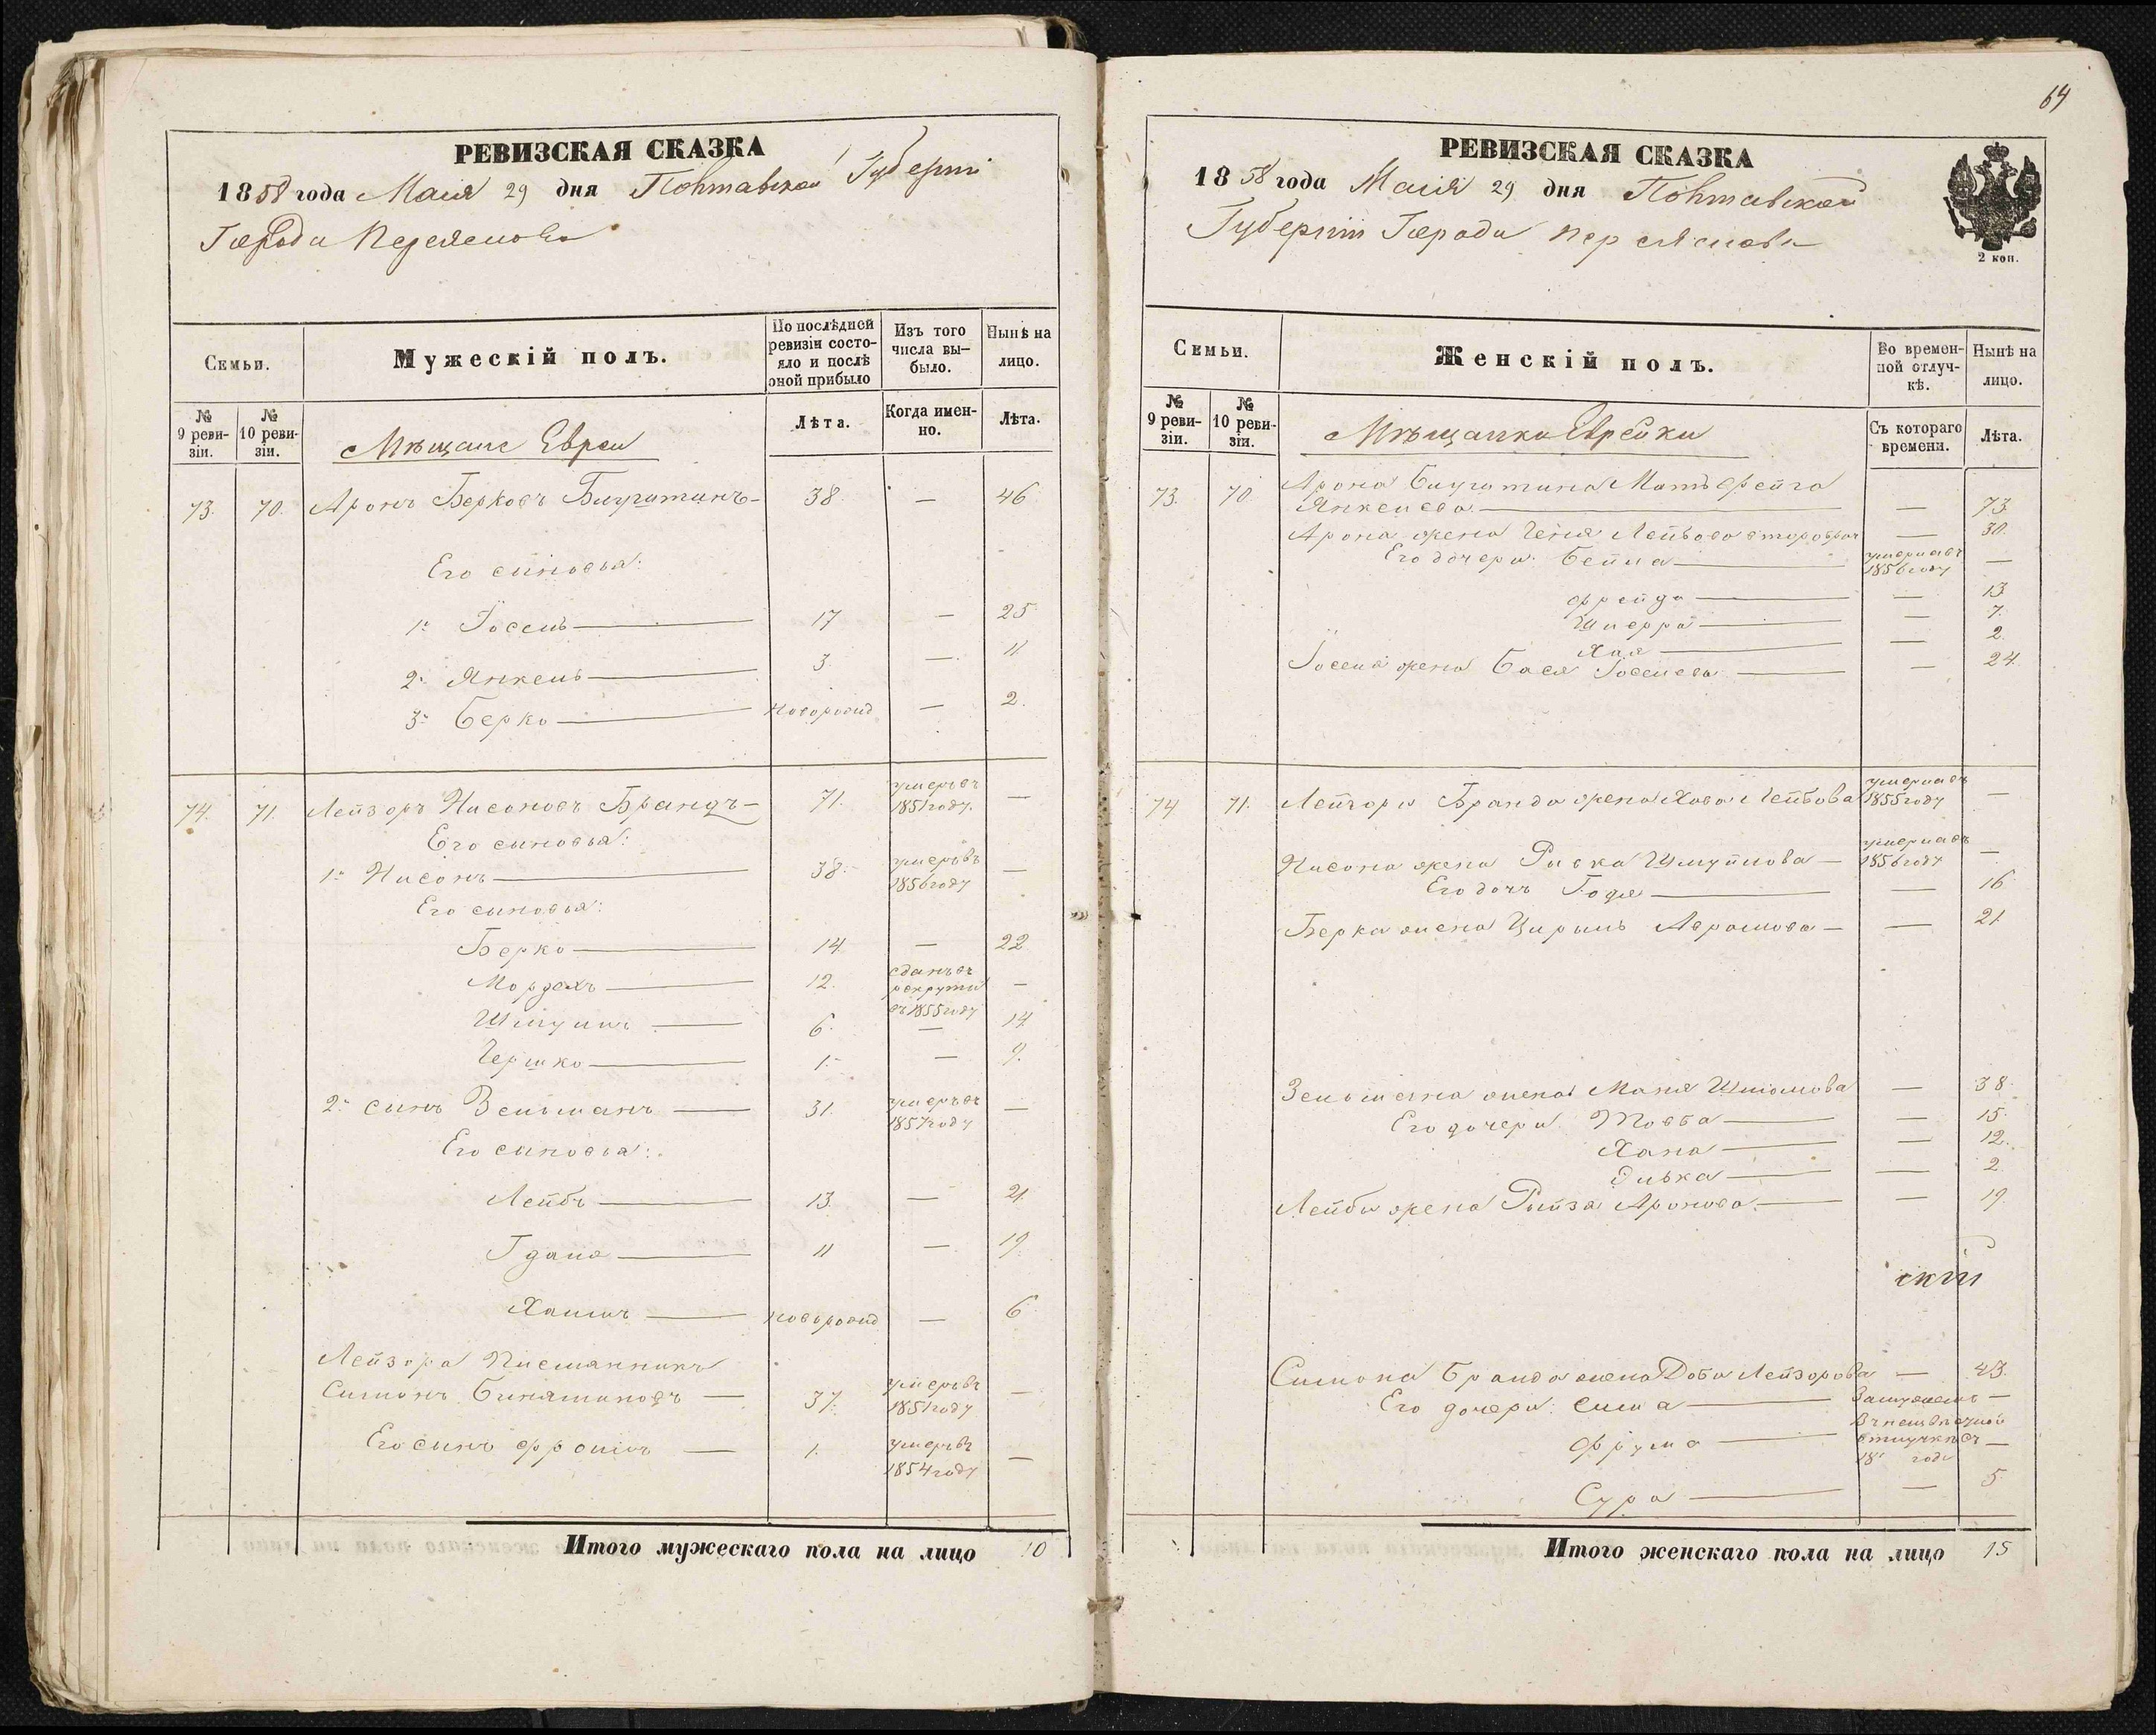 РЕВИЗСКАЯ СКАЗКА
1858 года Маія 29 дня Полтавской Губерніи
Города Переяслова
Семьи.
Мужескій полъ.
По послѣдней ревизіи состояло и послѣ оной прибыло
Изъ того числа вы-было.
Нынѣ на лицо.
№ 9 реви-зіи.
№ 10 реви-зіи.
Мѣщане Евреи
Лѣта.
Когда имен-но.
Лѣта.
73. 70. Аронъ Берковъ 38 — 46
Его сыновья:
1й Іосель 17 — 25
2й Янкель 3. — 11
3й Берко новорожд — 2.
74. 71. Лейзоръ Нисоновъ Брандъ 71. умеръ въ 1851 году. —
Его сыновья:
1й Нисонъ 38. умеръ въ 1856 году —
Его сыновья:
Берко 14 — 22
Мордехъ 12. сданъ въ рекруты въ 1855 году —
Шмуилъ 6. — 14
Гершко 1. — 9.
2й сынъ Зельманъ 31. умеръ въ 1857 году —
Его сыновья:
Лейбъ 13. — 21
Гдаля 11 — 19.
Хаимъ новорожд — 6
Лейзора Племянникъ
Симонъ Биняминовъ 37. умеръ въ 1851 году —
Его сынъ Фроимъ 1. умеръ въ 1854 году —
Итого мужескаго пола на лицо 10
64
РЕВИЗСКАЯ СКАЗКА
1858 года Маія 29 дня Полтавской
Губерніи Города Переяслова
2 коп.
Семьи.
Женскій полъ.
Во времен-ной отлуч-кѣ.
Нынѣ на лицо.
№ 9 реви-зіи.
№ 10 реви-зіи.
Мѣщанки Еврейки
Съ котораго времени.
Лѣта.
73. 70. Арона Мать Фейга
Янкелева — 73
Арона жена Геня Лейбова — 30.
Его дочери: Бейла умерла въ 1856 году —
Фрейда — 13
Шперра — 7.
Хая — 2.
Іоселя жена Бася Іоселева — 24.
74 71. Лейзора Бранда жена Хава Лейбова умерла въ 1855 году —
Нисона жена Ривка Шмуйлова умерла въ 1856 году —
Его дочь Годя — 16
Берка жена Цирыль Аврамова — 21
Зельмана жена Маня Шлиомова — 38
Его дочери. Товба — 15.
Хана — 12.
Ривка — 2
Лейбы жена Рыйза Аронова — 19.
скій
Симона Бранда жена Доба Лейзорова — 43.
Его дочери: Сима Замужемъ —
Фрума Въ отлучкѣ съ 18 года —
Сура — 5.
Итого женскаго пола на лицо 15